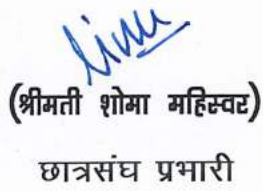 (श्रीमती शोमा महिस्वर)
छात्रसंघ प्रभारी